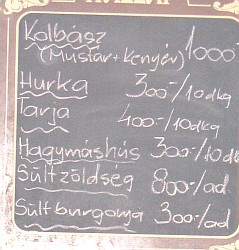 Kolbász
(Mustár+Kenyér) 1000-
Hurka 300-/10dkg
Tarja 400-/10dkg
Hagymáshús 300-/10dk
Sültzöldség 800-/ad
Sültburgonya 300-/ad